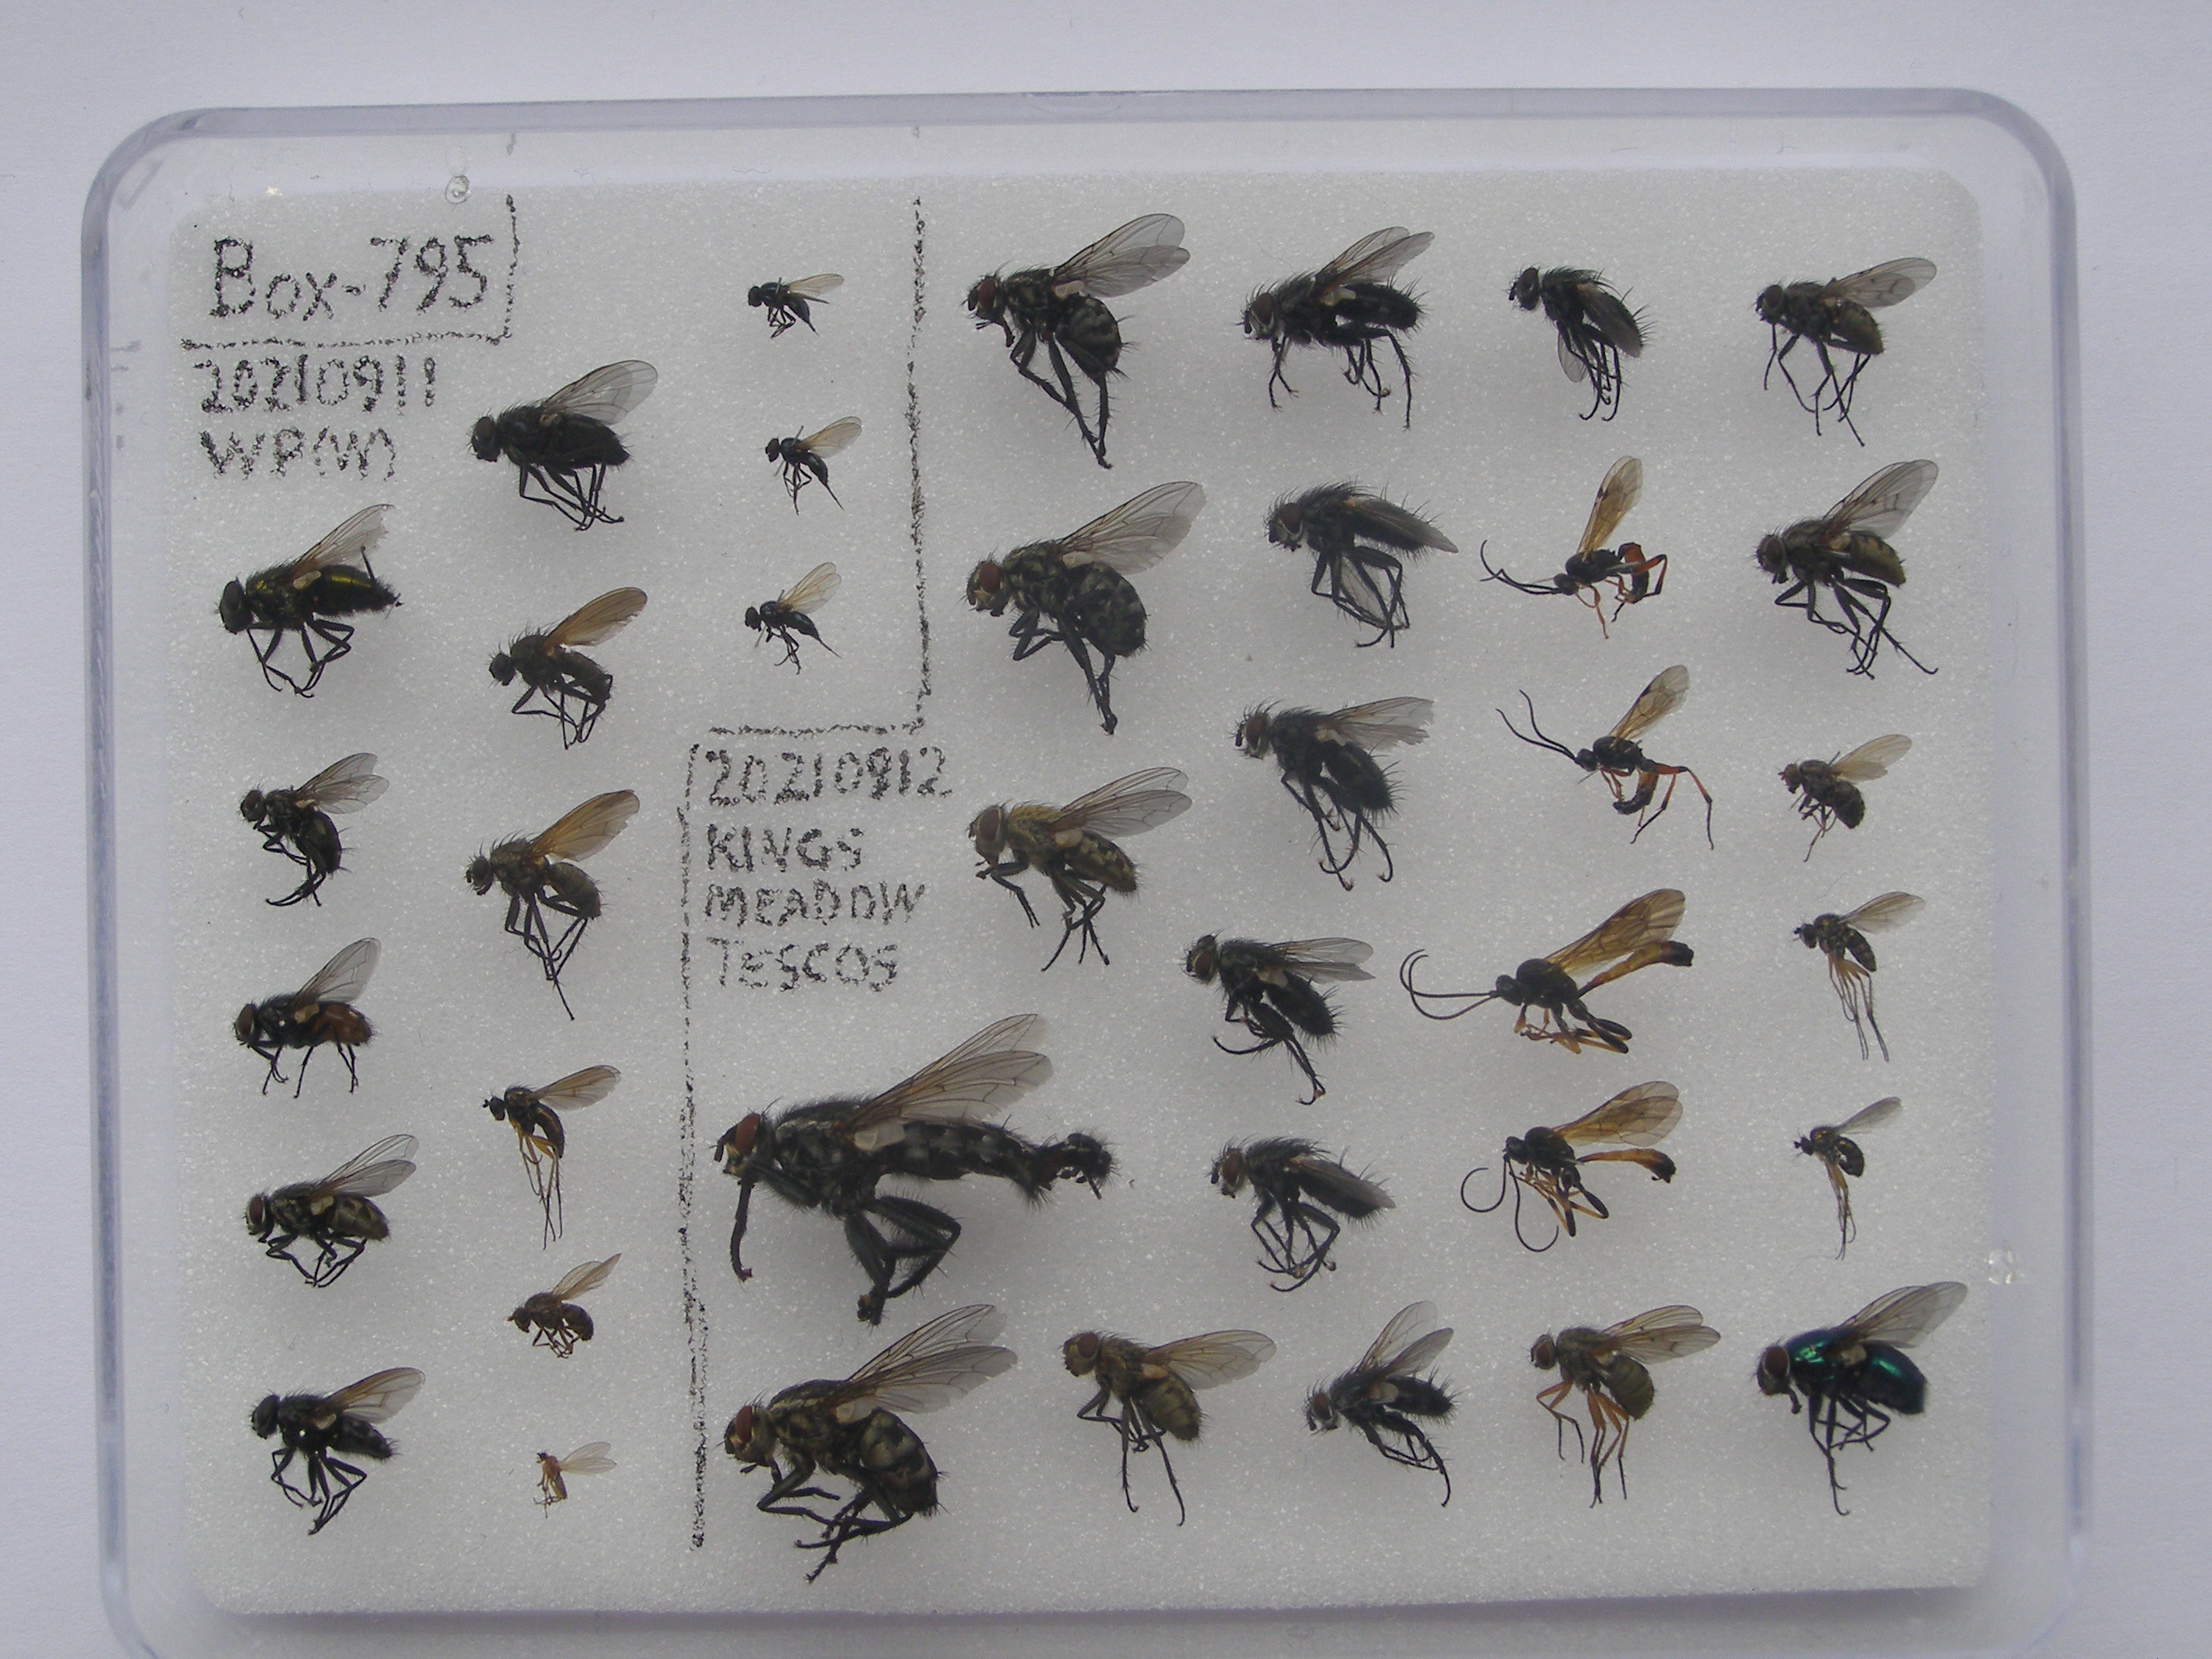 Box-795
20210911
WP(W)
20210912
KINGS
MEADOW
TESCOS